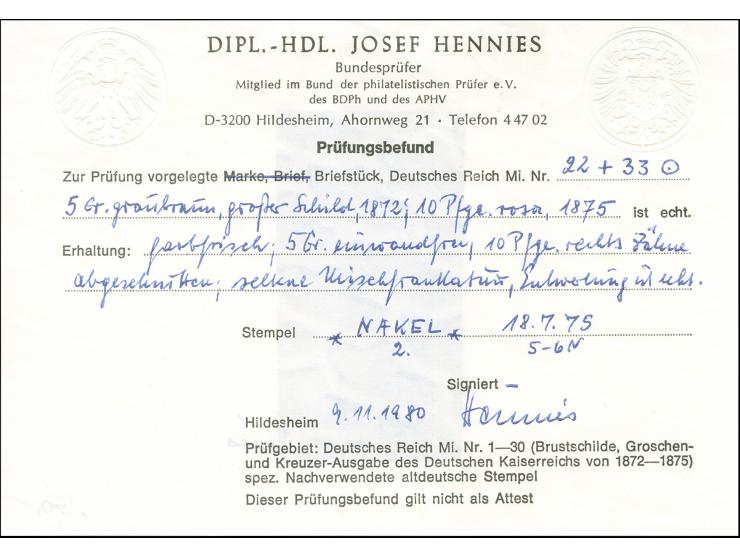 DIPL.-HDL. JOSEF HENNIES
Bundesprüfer
Mitglied im Bund der philatelistischen Prüfer e.V.
des BDPh und des APHV
D-3200 Hildesheim, Ahornweg 21 · Telefon 4 47 02
Prüfungsbefund
Zur Prüfung vorgelegte Marke, Brief, Briefstück, Deutsches Reich Mi. Nr. 22 + 33 ⊙
5 Gr. graubraun, großer Schild, 1872; 10 Pfge. rosa, 1875 ist echt.
Erhaltung: farbfrisch; 5 Gr. einwandfrei, 10 Pfge. rechts Zähne
abgeschnitten; seltene Mischfrankatur, Entwertung ist echt.
Stempel * NAKEL * 18.7.75
2. 5-6N
Signiert —
Hildesheim 9.11.1980 Hennies
Prüfgebiet: Deutsches Reich Mi. Nr. 1—30 (Brustschilde, Groschen-
und Kreuzer-Ausgabe des Deutschen Kaiserreichs von 1872—1875)
spez. Nachverwendete altdeutsche Stempel
Dieser Prüfungsbefund gilt nicht als Attest